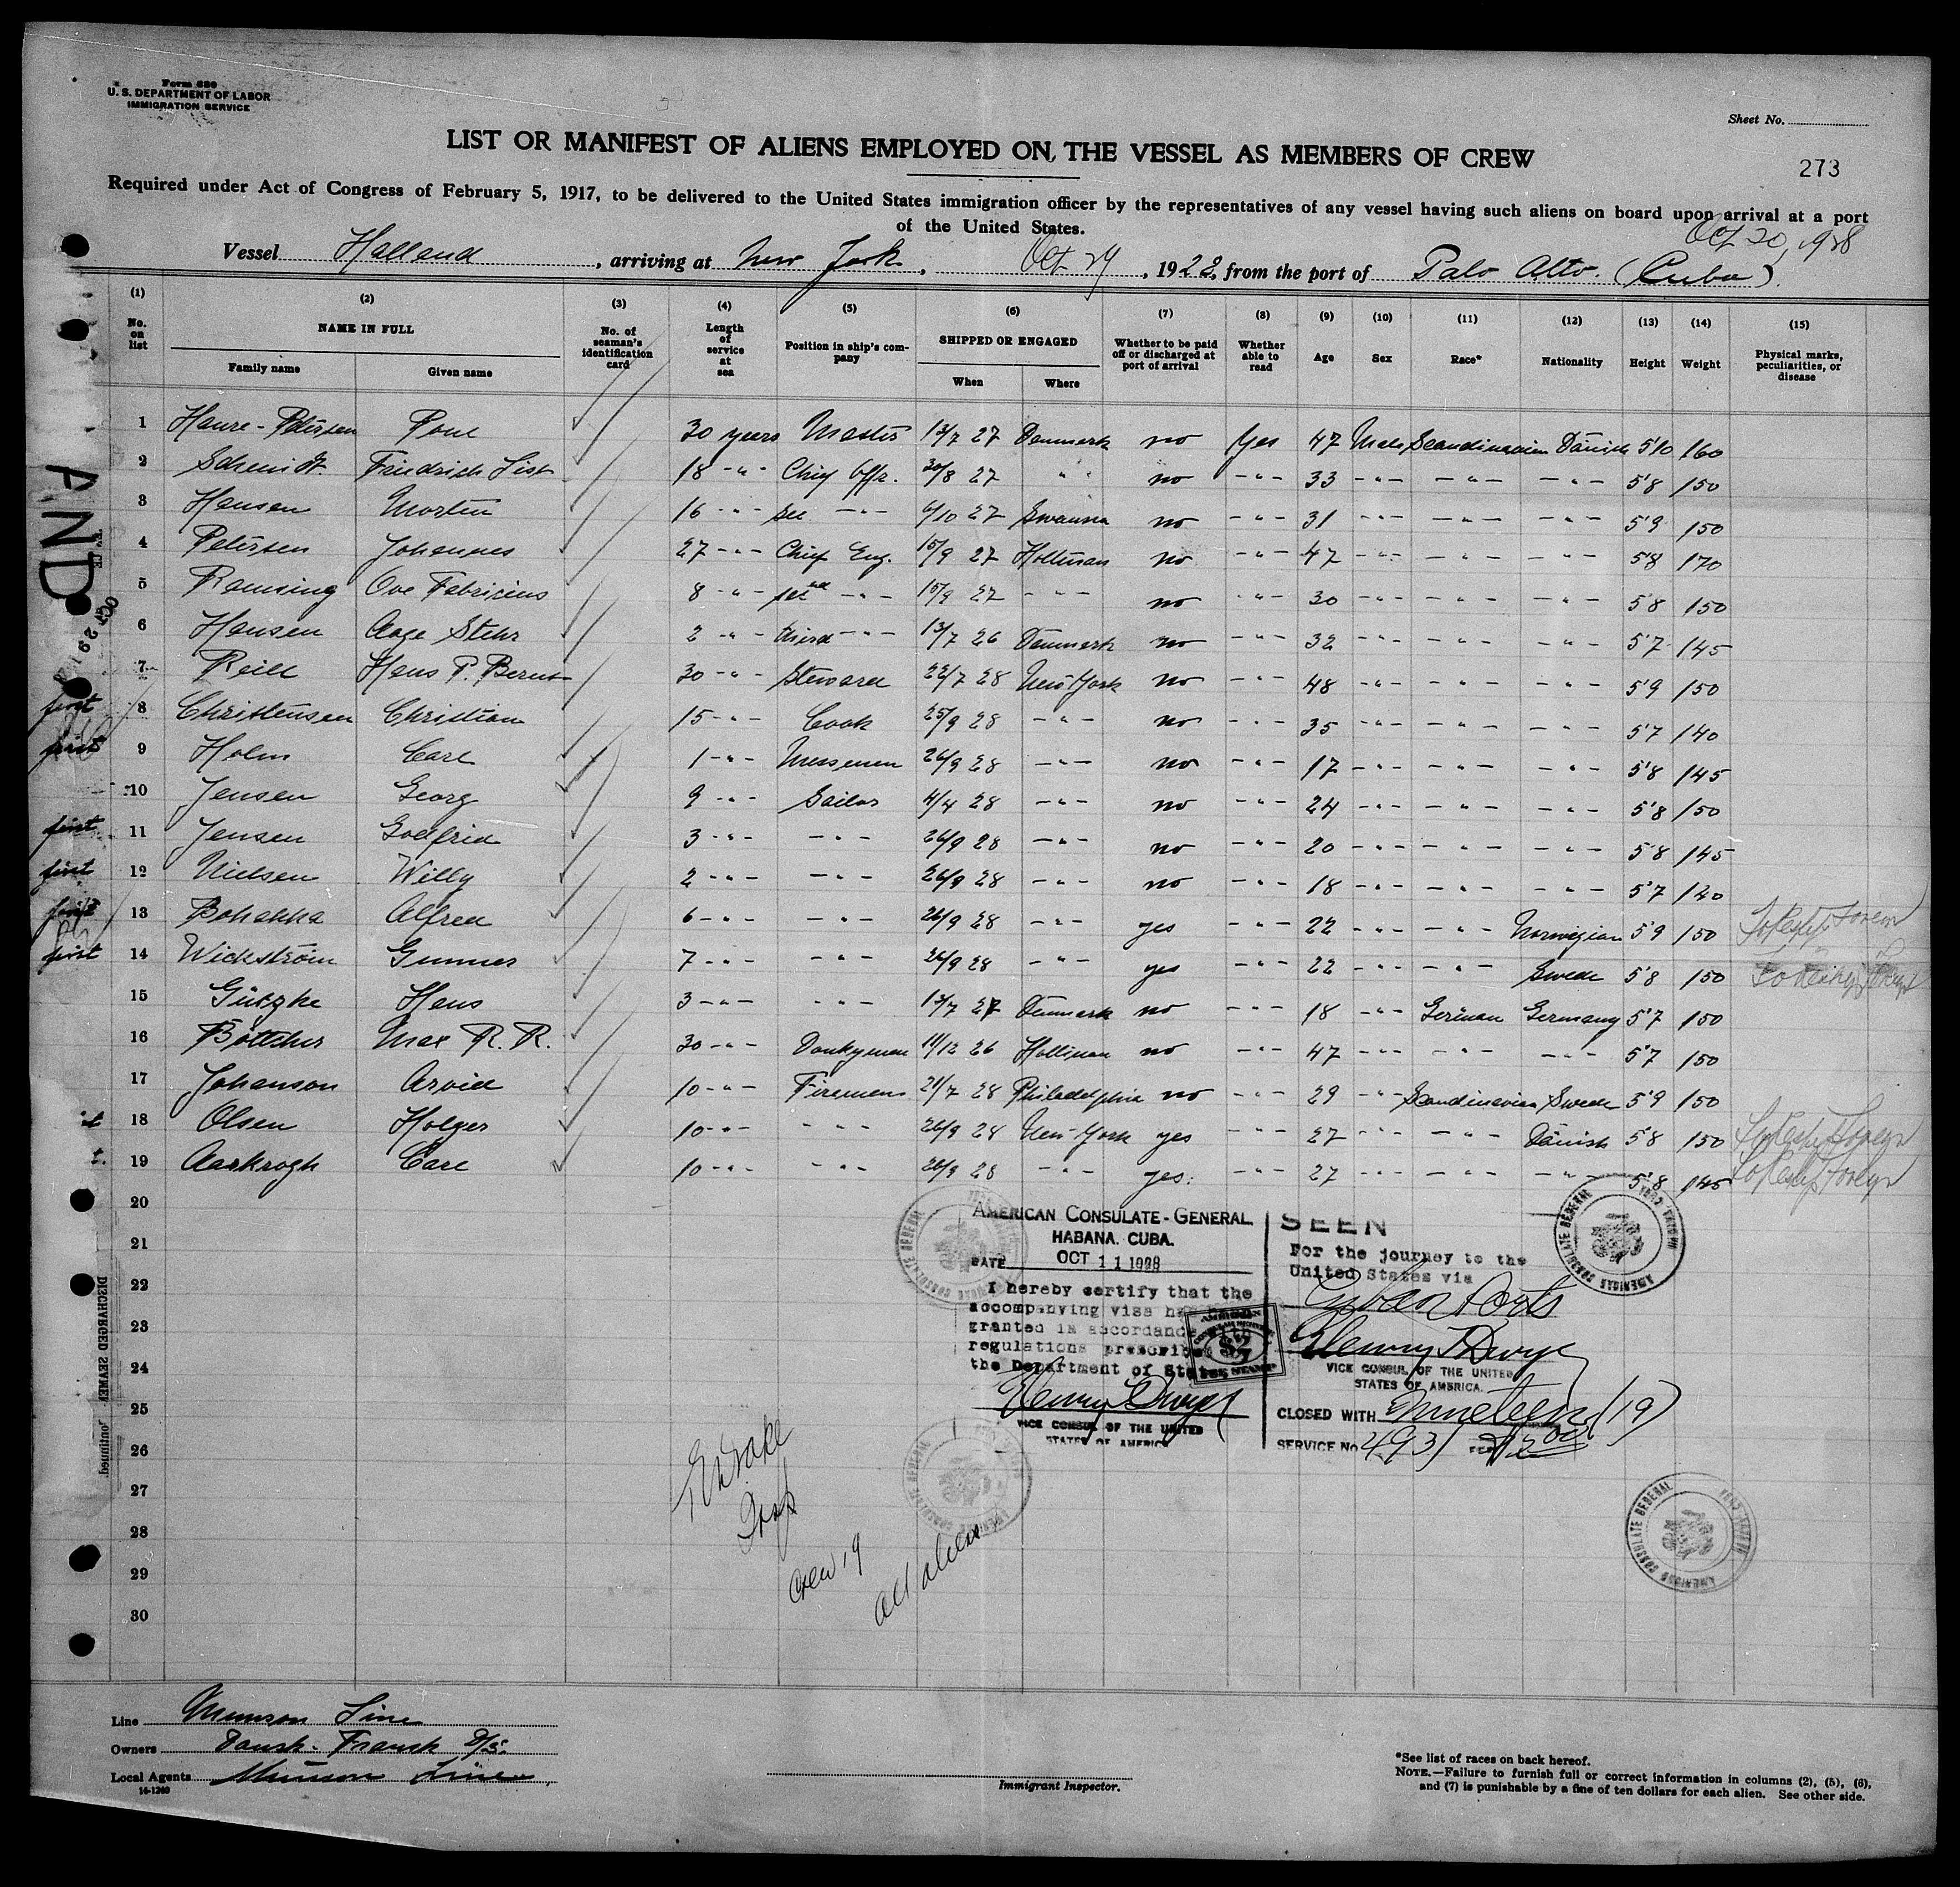 Form 680
U. S. DEPARTMENT OF LABOR
IMMIGRATION SERVICE
Sheet No.
LIST OR MANIFEST OF ALIENS EMPLOYED ON THE VESSEL AS MEMBERS OF CREW
273
Required under Act of Congress of February 5, 1917, to be delivered to the United States immigration officer by the representatives of any vessel having such aliens on board upon arrival at a port
of the United States.
Oct 20, 1928
Vessel Halland, arriving at New York, Oct 29, 1928, from the port of Palo Alto. (Cuba).
(1) (2) (3) (4) (5) (6) (7) (8) (9) (10) (11) (12) (13) (14) (15)
No. on list NAME IN FULL Family name Given name No. of seaman's identification card Length of service at sea Position in ship's company SHIPPED OR ENGAGED When Where Whether to be paid off or discharged at port of arrival Whether able to read Age Sex Race* Nationality Height Weight Physical marks, peculiarities, or disease
1 Haure-Petersen Poul 30 years Master 13/7 27 Denmark no Yes 47 Male Scandinavian Danish 5'10 160
2 Schmidt Friedrich List 18 -"- Chief Offr. 30/8 27 " " no -"- 33 -"- -"- -"- 5'8 150
3 Hansen Morten 16 -"- sec -"- 6/10 27 Swansea no -"- 31 -"- -"- -"- 5'9 150
4 Petersen Johannes 27 -"- Chief Eng. 15/9 27 Holtenau no -"- 47 -"- -"- -"- 5'8 170
5 Ramsing Ove Fabricius 8 -"- -"- 15/9 27 -"- no -"- 30 -"- -"- -"- 5'8 150
6 Hansen Aage Stehr 2 -"- third -"- 13/7 26 Denmark no -"- 32 -"- -"- -"- 5'7 145
7 Reill Hans P. Bernt 30 -"- Steward 22/7 28 New York no -"- 48 -"- -"- -"- 5'9 150
first 8 Christensen Christian 15 -"- Cook 25/9 28 -"- no -"- 35 -"- -"- -"- 5'7 140
first 9 Holm Carl 1 -"- Messman 26/9 28 -"- no -"- 17 -"- -"- -"- 5'8 145
10 Jensen Georg 9 -"- Sailor 4/4 28 -"- no -"- 24 -"- -"- -"- 5'8 150
first 11 Jensen Godfrid 3 -"- -"- 26/9 28 -"- no -"- 20 -"- -"- -"- 5'8 145
first 12 Nielsen Willy 2 -"- -"- 26/9 28 -"- no -"- 18 -"- -"- -"- 5'7 120
first 13 Bohakka Alfred 6 -"- -"- 26/9 28 -"- yes -"- 22 -"- -"- Norwegian 5'9 150 To Reship Foreign
first 14 Wickström Gunner 7 -"- -"- 26/9 28 -"- yes -"- 22 -"- -"- Swede 5'8 150 To Reship Foreign
15 Gützke Hans 3 -"- -"- 13/7 27 Denmark no -"- 18 -"- German Germany 5'7 150
16 Böttcher Max R. R. 30 -"- Donkyman 11/12 26 Holtenau no -"- 47 -"- -"- -"- 5'7 150
17 Johanson Arvid 10 -"- Firemen 21/7 28 Philadelphia no -"- 29 -"- Scandinavian Swede 5'9 150
18 Olsen Holger 10 -"- -"- 26/9 28 New York yes -"- 27 -"- -"- Danish 5'8 150 To Reship Foreign
19 Aarkrogh Carl 10 -"- -"- 26/9 28 -"- yes. -"- 27 -"- -"- -"- 5'8 145 To Reship Foreign
20
21
22
23
24
25
26
27
28
29
30
AND
OCT 29
DISCHARGED SEAMEN continued
AMERICAN CONSULATE-GENERAL
HABANA. CUBA.
DATE OCT 11 1928
I hereby certify that the
accompanying visa has been
granted in accordance
regulations prescribed
the Department of State
VICE CONSUL OF THE UNITED
STATES OF AMERICA
SEEN
For the journey to the
United States via
Cuban Ports
VICE CONSUL OF THE UNITED
STATES OF AMERICA.
CLOSED WITH Nineteen (19)
SERVICE No 4931
Insp
Crew 19
all aliens
Line Munson Line
Owners Dansk-Fransk D/S.
Local Agents Munson Line
14-1240
Immigrant Inspector.
*See list of races on back hereof.
NOTE.—Failure to furnish full or correct information in columns (2), (5), (6),
and (7) is punishable by a fine of ten dollars for each alien. See other side.